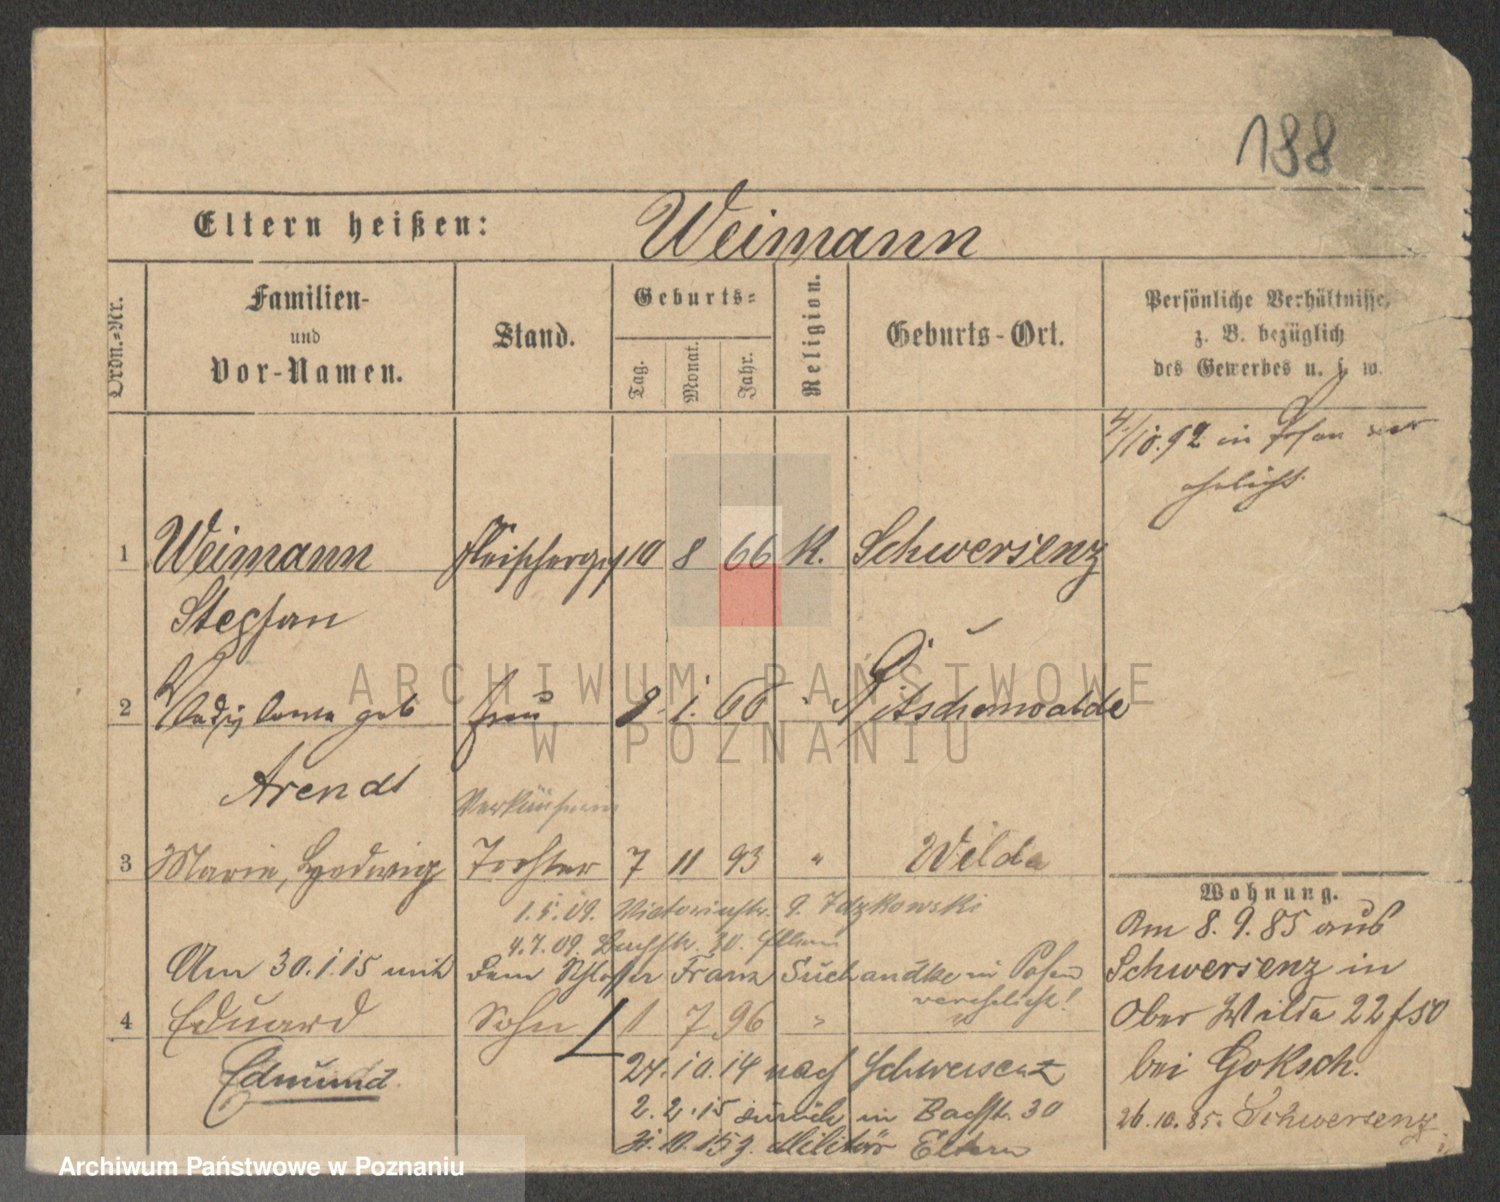 188
Eltern heißen: Weimann
Ordn.-Nr.
Familien-
und
Vor-Namen.
Stand.
Geburts-
Tag.
Monat.
Jahr.
Religion.
Geburts-Ort.
Persönliche Verhältnisse,
z. B. bezüglich
des Gewerbes u. s. w.
4/10.92 in Posen ver
ehelicht
1 Weimann Fleischerges 10 8 66 K. Schwersenz
Stephan
2 geb Frau 9. 1. 66 Ritschenwalde
Arendt
Verkäuferin
3 Marie, Hedwig Tochter 7 11 93 " Wilda
1.5.09. Victoriastr. 9.
4.7.09. Bachstr. 30. Eltern
Am 30.1.15 mit dem Schlosser Franz in Posen
verehelicht!
4 Eduard Sohn 1 7 96 "
Edmund
24.10.14 nach Schwersenz
2.2.15 zurück in Bachstr. 30
10.15 z. Militär Eltern
Wohnung.
Am 8.9.85 aus
Schwersenz in
Ober Wilda 22 f 50
bei Goksch.
26.10.85. Schwersenz
ARCHIWUM PAŃSTWOWE
W POZNANIU
Archiwum Państwowe w Poznaniu